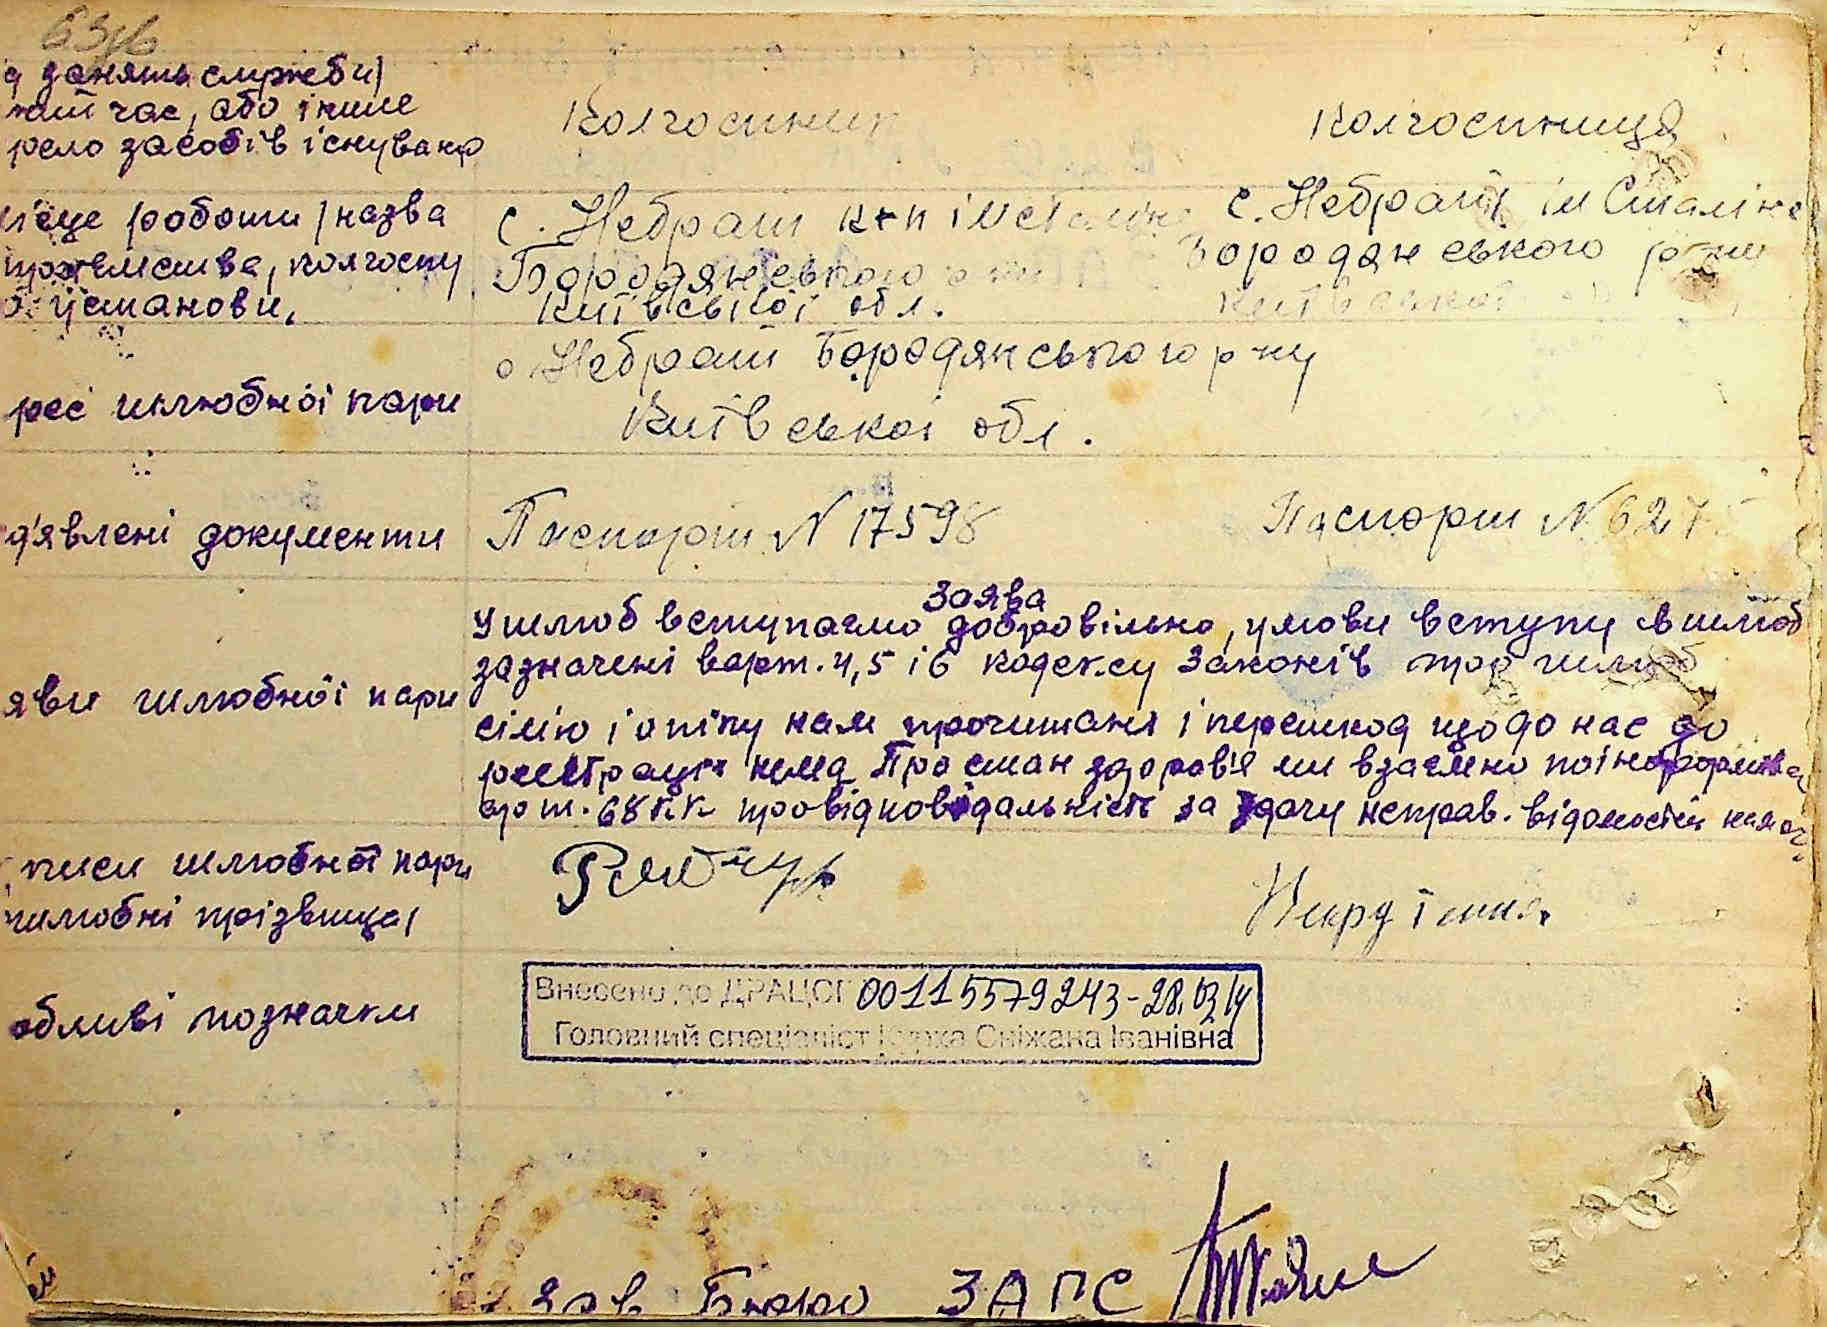 занять служби)
час, або інше
рело засобів існуванр
Колгоспник
Колгоспниця
місце роботи (назва
колгоспу
установи,
с. Небрат к-п ім Сталіна
Бородянського р-ну
Київської обл.
с. Небрат ім Сталіна
Бородянського р-ну
Київської
рес шлюбної пари
с Небрат Бородянського р-ну
Київської обл.
д'явлені документи
Паспорт N 17598
Паспорт N 627
яви шлюбної пари
Заява
У шлюб вступаємо добровільно, умови вступу в шлюб
зазначені в арт. 4, 5 і 6 кодексу законів про шлюб
сім'ю і опіку нам прочитані і перешкод щодо нас до
реєстрації нема Про стан здоров'я ми взаємно поінформова
арт. 68 КК про відповідальність за здачу неправ. відомостей нам
писи шлюбної пари
шлюбні прізвища)
обливі позначки
Внесено до ДРАЦСГ 00115579243-28.03.14
Головний спеціаліст Сніжана Іванівна
Зав Бюро ЗАГС